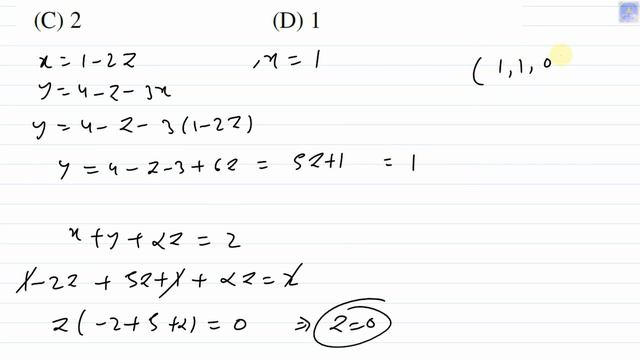 (C) 2 (D) 1
x = 1 - 2z , x = 1 ( 1, 1, 0
y = 4 - z - 3x
y = 4 - z - 3(1-2z)
y = 4 - z - 3 + 6z = 5z+1 = 1
x + y + αz = 2
1 - 2z + 5z + 1 + αz = 2
z ( -2 + 5 + α) = 0 ⇒ z=0